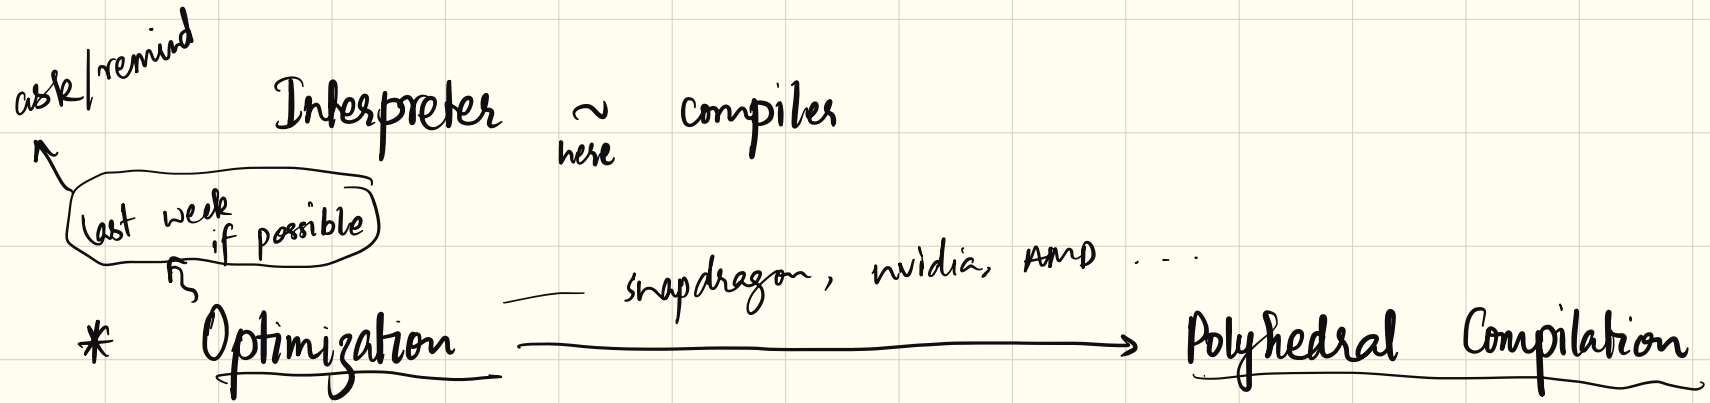 ask/remind
Interpreter ~ compiler
here
last week
if possible
snapdragon, nvidia, AMD ....
* Optimization → Polyhedral Compilation